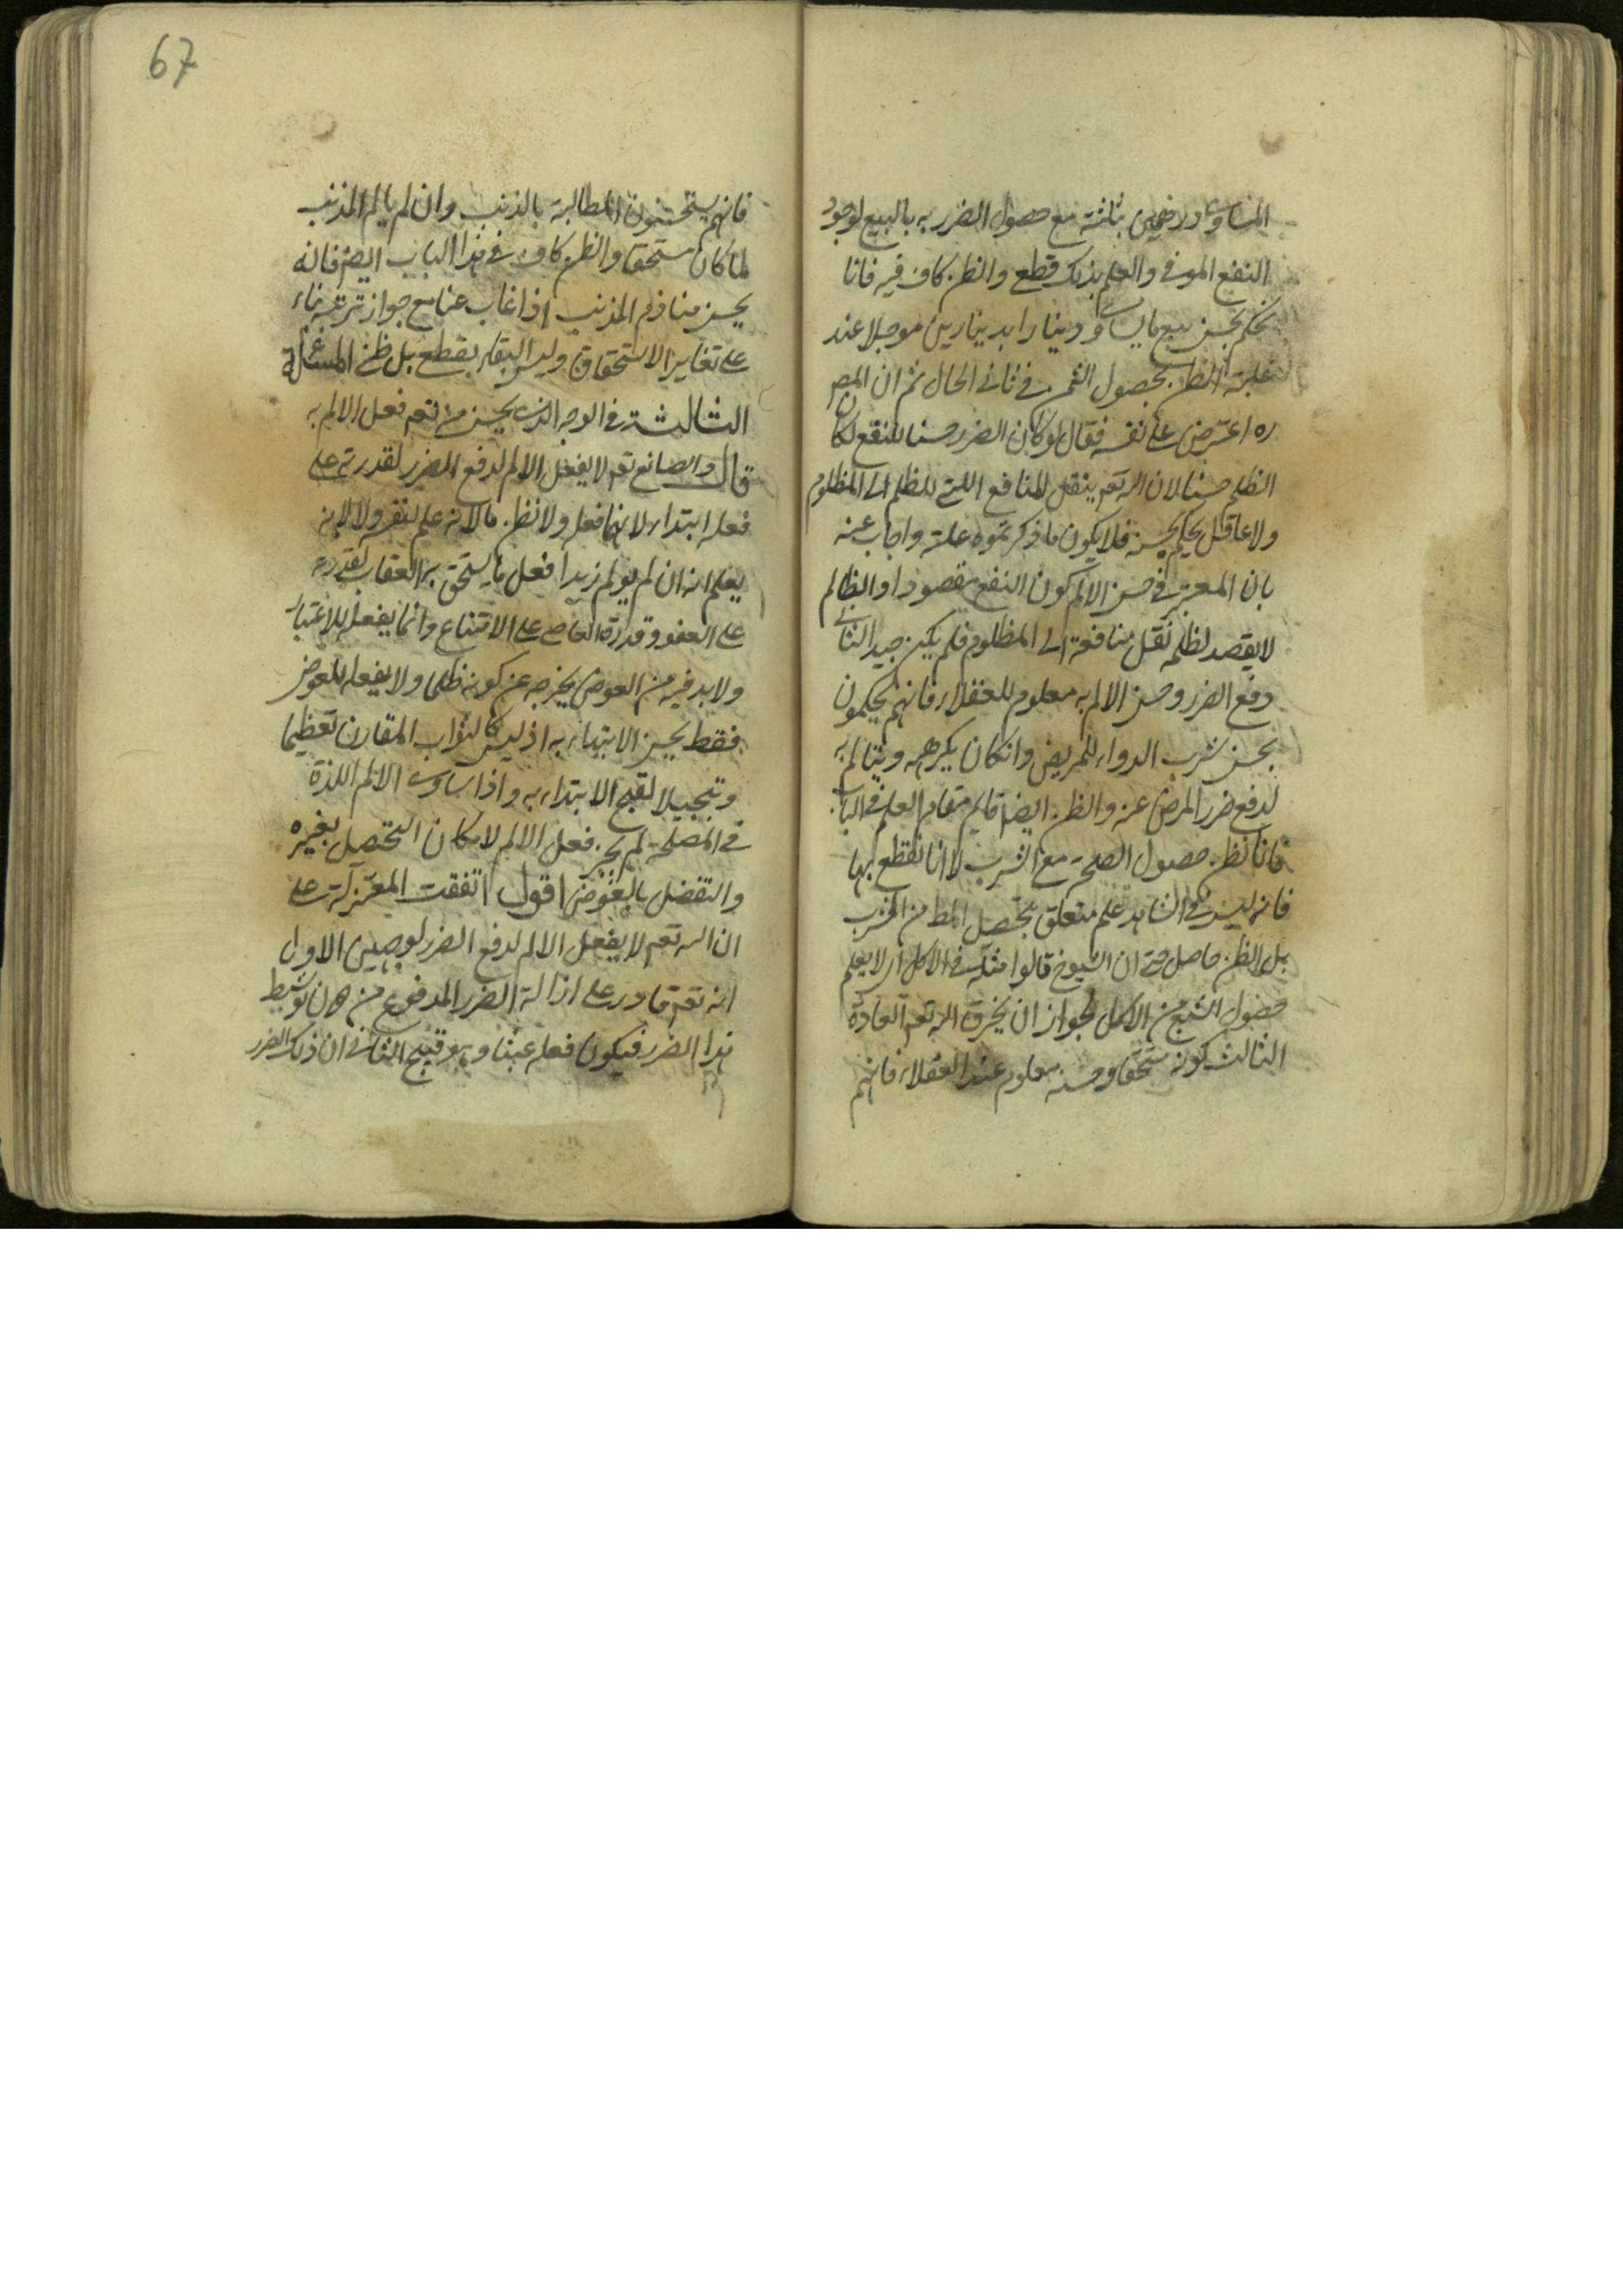 المساوي درهمين بثلثة مع حصول الضرر به بالبيع لوجود
النفع الموفى والعلم بذلك قطع والظن كاف فيه فانا
نحكم بحسن بيع ما يساوي دينارا بدينارين موجلا عند
غلبة الظن بحصول الثمن في ثاني الحال ثم ان المص
ره اعترض على نفسه فقال لو كان الضرر حسنا للنفع لكان
الظلم حسنا لان الله تعم ينقل المنافع اللتى للظلم الى المظلوم
ولا عاقل يحكم بحسنه فلا يكون ما ذكرتموه علة واجاب عنه
بان المعتبر في حسن الالم كون النفع مقصودا والظالم
لا يقصد لظلمه نقل منافعه الى المظلوم فلم يكن جيدا الثاني
دفع الضرر وحسن الالم به معلوم للعقلاء فانهم يحكمون
بحسن شرب الدواء للمريض وانكان يكرهه ويتالم به
لدفع ضرر المرض عنه والظن ايضا قايم مقام العلم في الباب
فانا نظن حصول الصحة مع الشرب لا انا نقطع بها
فانه ليس في الشاهد علم متعلق بتحصل المط من الشرب
بل الظن حاصل حتى ان الشيوخ قالوا مثله في الاكل اي لا يعلم
حصول الشبع من الاكل لجواز ان يخرق الله تعم العادة
الثالث كونه مستحقا وحسنه معلوم عند العقلاء فانهم
67
فانهم يستحسنون المطالبة بالذنب وان لم يالم المذنب
لما كان مستحقا والظن كاف في هذا الباب ايضا فانه
يحسن منا ذم المذنب اذا غاب عنا مع جواز توبته بناء
على تغاير الاستحقاق وليس البقاء بقطع بل ظن المسئلة
الثالثة في الوجه الذي يحسن منه تعم فعل الالم به
قال والصانع تعم لا يفعل الالم لدفع الضرر لقدرته على
فعله ابتداء لا نما فعل ولا نظن مالانه علم لنفسه ولا لانه
يعلم انه ان لم يولم زيدا فعل ما يستحق به العقاب لقدرته
على العفو وقدرة العاصي على الامتناع وانما يفعله للاعتبار
ولا بد فيه من العوض يخرجه عن كونه ظلما ولا يفعله للعوض
فقط بحسن الابتداء به اذ ليس كالثواب المقارن تعظيما
وتبجيلا لقبح الابتداء به واذا ساوى الالم اللذة
في المصلحة لم يجز فعل الالم لامكان التحصل بغيره
والتفضل بالعوض اقول اتفقت المعتزلة على
ان الله تعم لا يفعل الالم لدفع الضرر لوجهين الاول
انه تعم قادر على ازالة الضرر المدفوع من دون توسط
هذا الضرر فيكون فعله عبثا وهو قبيح الثاني ان ذلك الضرر